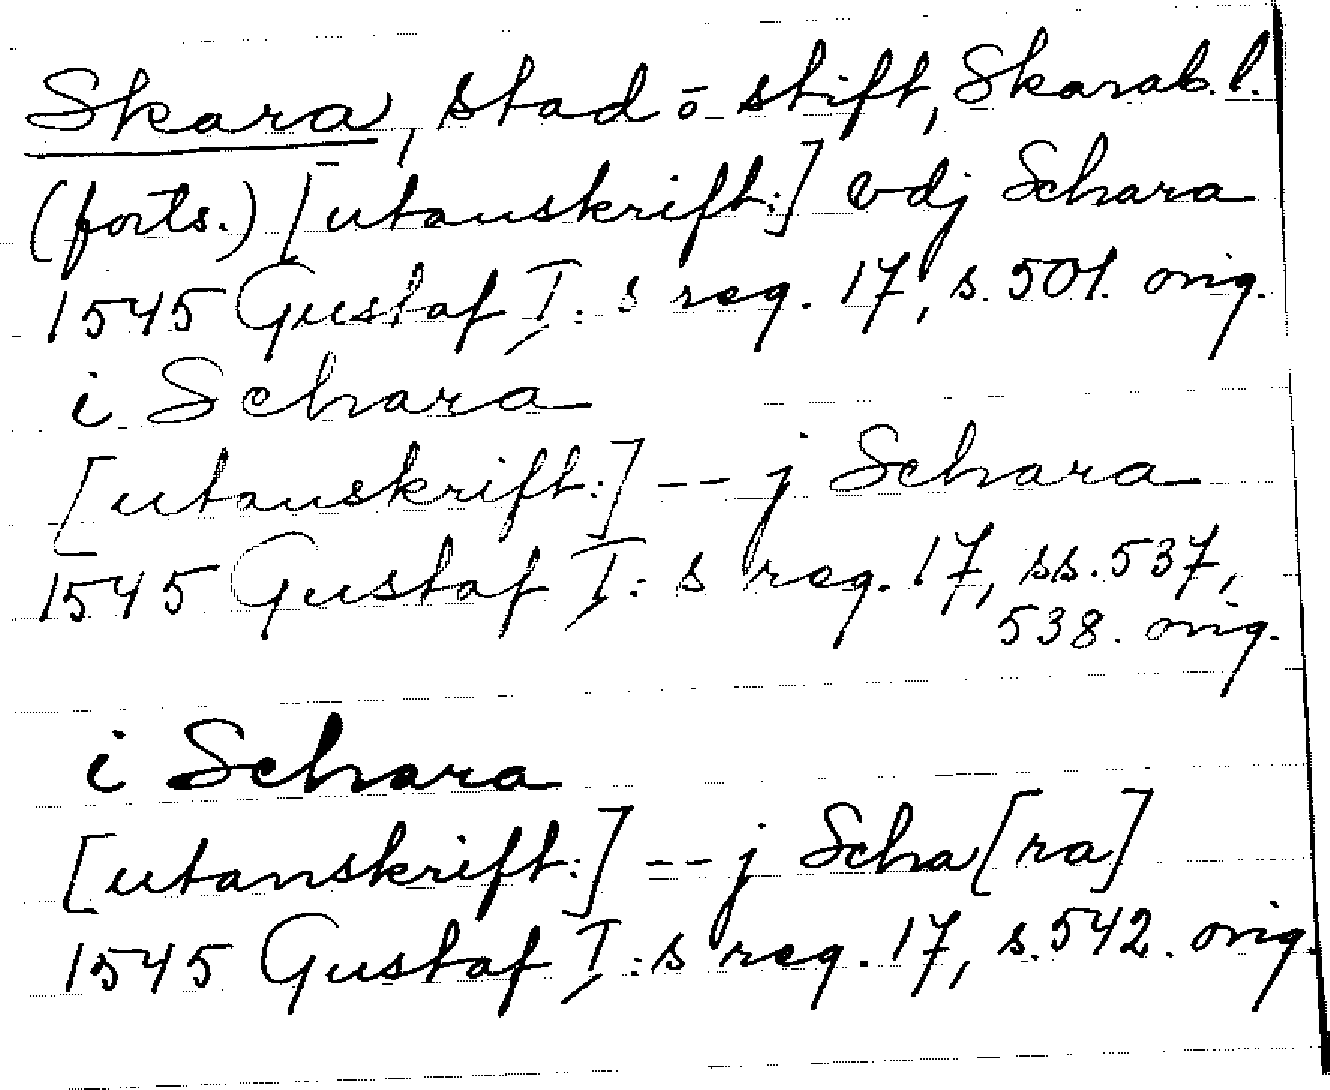 Skara, stad o stift, Skarab. l.
(forts.) [utanskrift:] vdj Schara
1545 Gustaf I: s reg. 17, s. 501. orig.
i Schara
[utanskrift:] -- j Schara
1545 Gustaf I: s reg. 17, ss. 537,
538. orig.
i Schara
[utanskrift:] -- j Scha[ra]
1545 Gustaf I: s reg. 17, s. 542. orig.